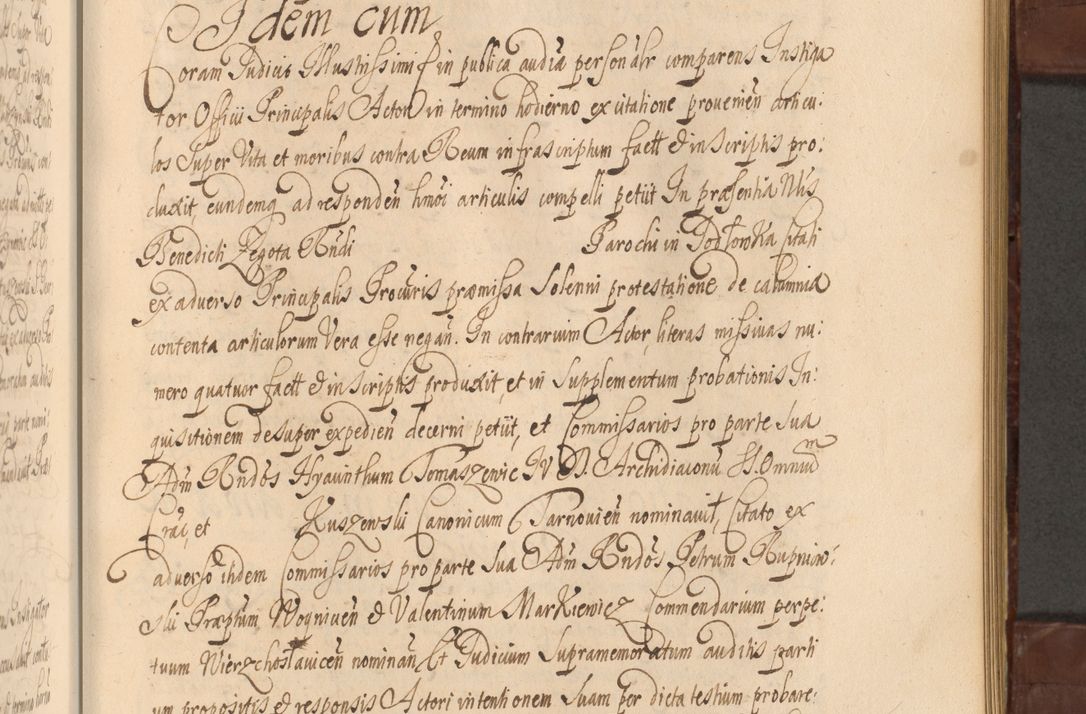 Idem cum
Coram Judicio Illustrissimi in publica audia personalr comparens Instiga
tor Officii Principalis Actor in termino hodierno ex citatione provenien articu:
los super Vita et moribus contra Reum infrascriptum factt & in Scriptis pro:
duxit, eundemq ad responden hmoi articulis compelli petiit In præsentia Nlis
Benedicti Zegota Rndi Parochi in Podłowka citati
ex adverso Principalis Procuris præmissa Solenni protestatione de calumnia
contenta articulorum Vera esse negan. In contrarium Actor, literas missivas nu:
mero quatuor factt & in Scriptis produxit, et in Supplementum probationis In:
quisitionem desuper expedien decerni petiit, et Commissarios pro parte sua
Adm Rndos Hyacinthum Tomaszewic IVD. Archidiaconu SS. Omnium
Crac, et Kuszewski Canonicum Tarnovien nominavit, Citato ex
adverso itidem Commissarios pro parte sua Adm Rndos Petrum Rupniow:
ski Præptum Wognicen & Valentinum Markiewicz Commendarium perpe:
tuum Wierzchosławicen nominan Et Judicium Supramemoratum auditis parti
um propositis & responsis Actori intentionem suam per dicta testium probare: